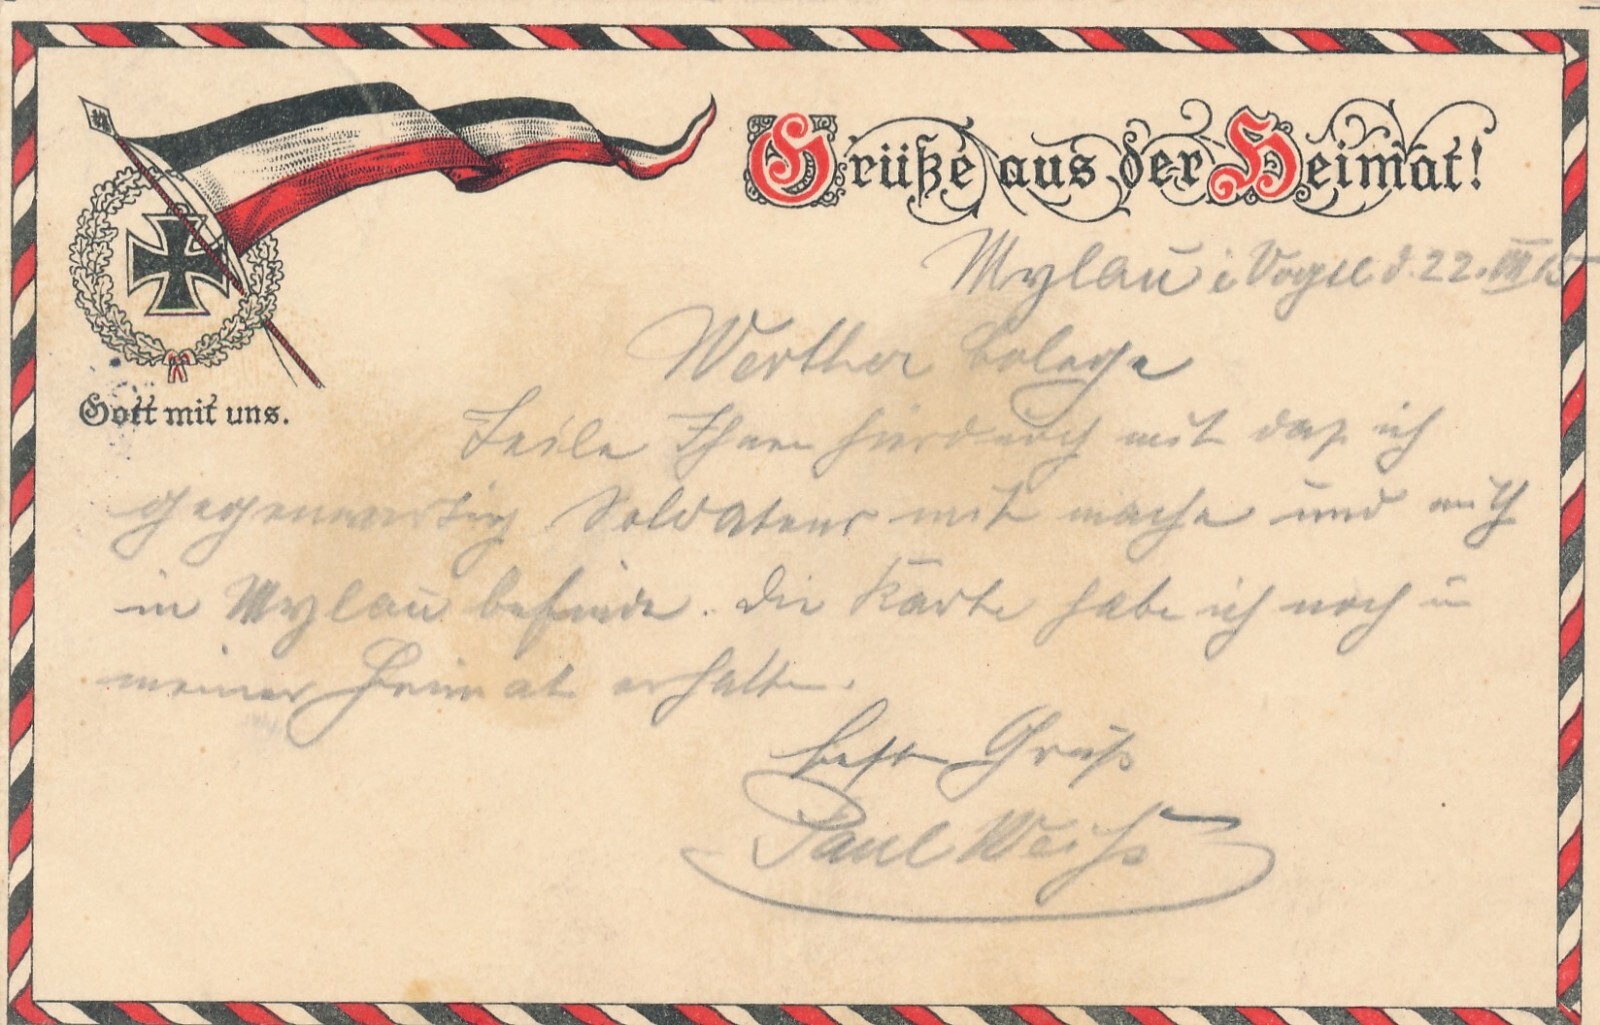 Grüße aus der Heimat!
Gott mit uns.
Mylau i Vogtl d. 22. VII 15
Werther Colege
Teile Ihnen hierdurch mit daß ich
gegenwertig Soldatens mit mache und mich
in Mylau befinde. Die Karte habe ich noch in
meiner Heimat erhalten.
besten Gruß
Paul Weiß